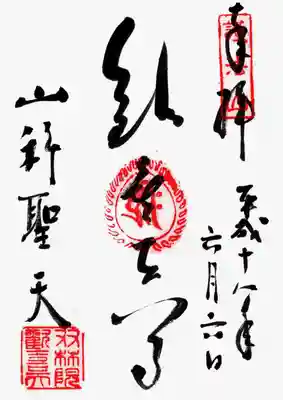 奉拝
平成十八年
六月六日
歓喜天
山科聖天
双林院